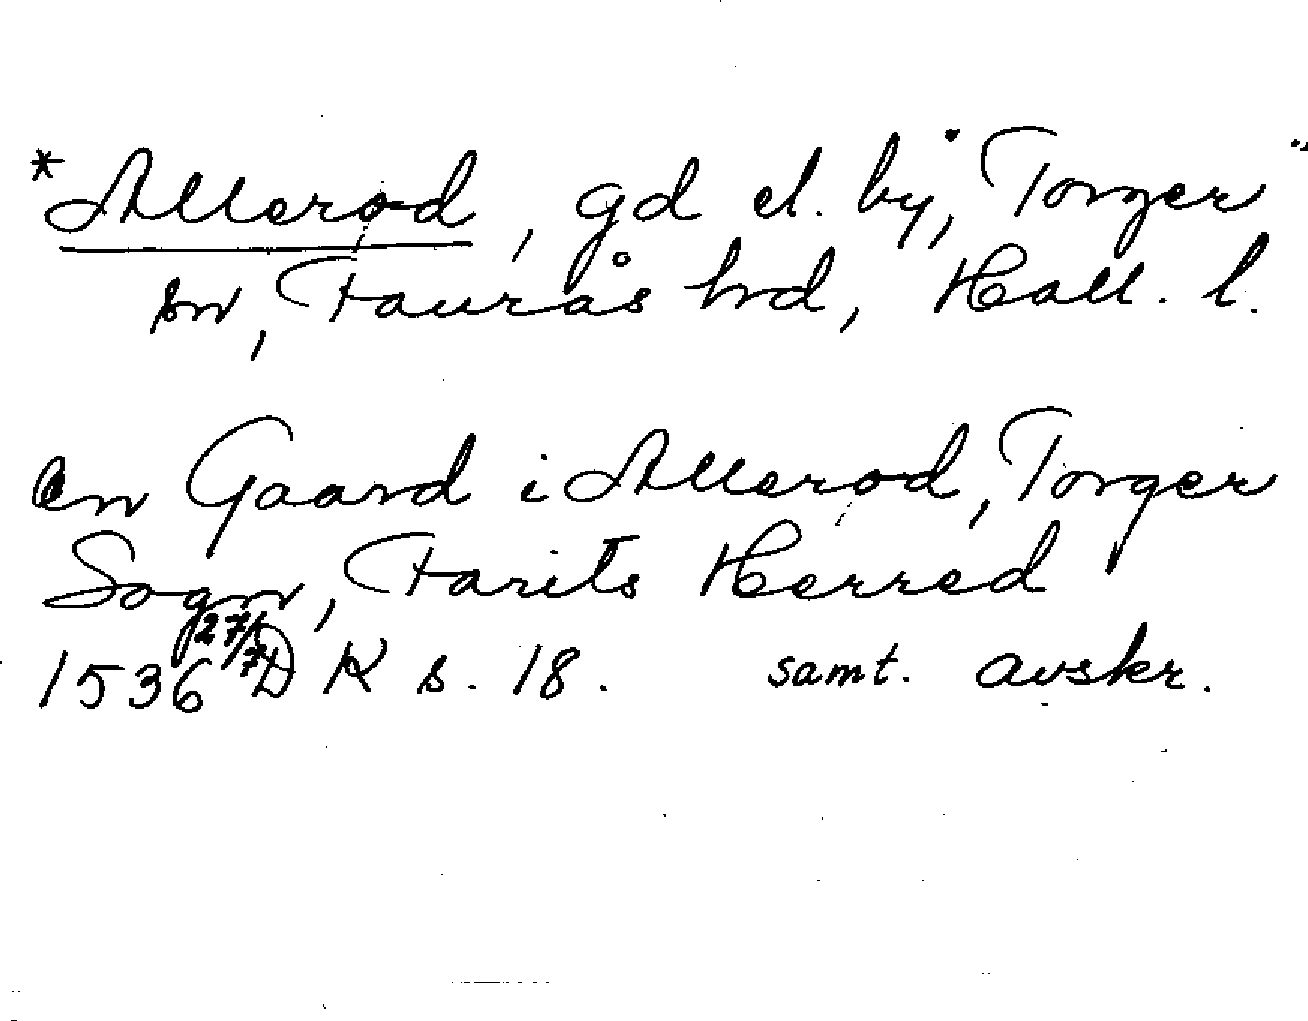 *Allerød, gd el. by, "Torger"
sn, Faurås hrd, Hall. l.
en Gaard i Allerød, Torger
Sogn, Farits Herred
1536 27/7 DK s. 18. samt. avskr.